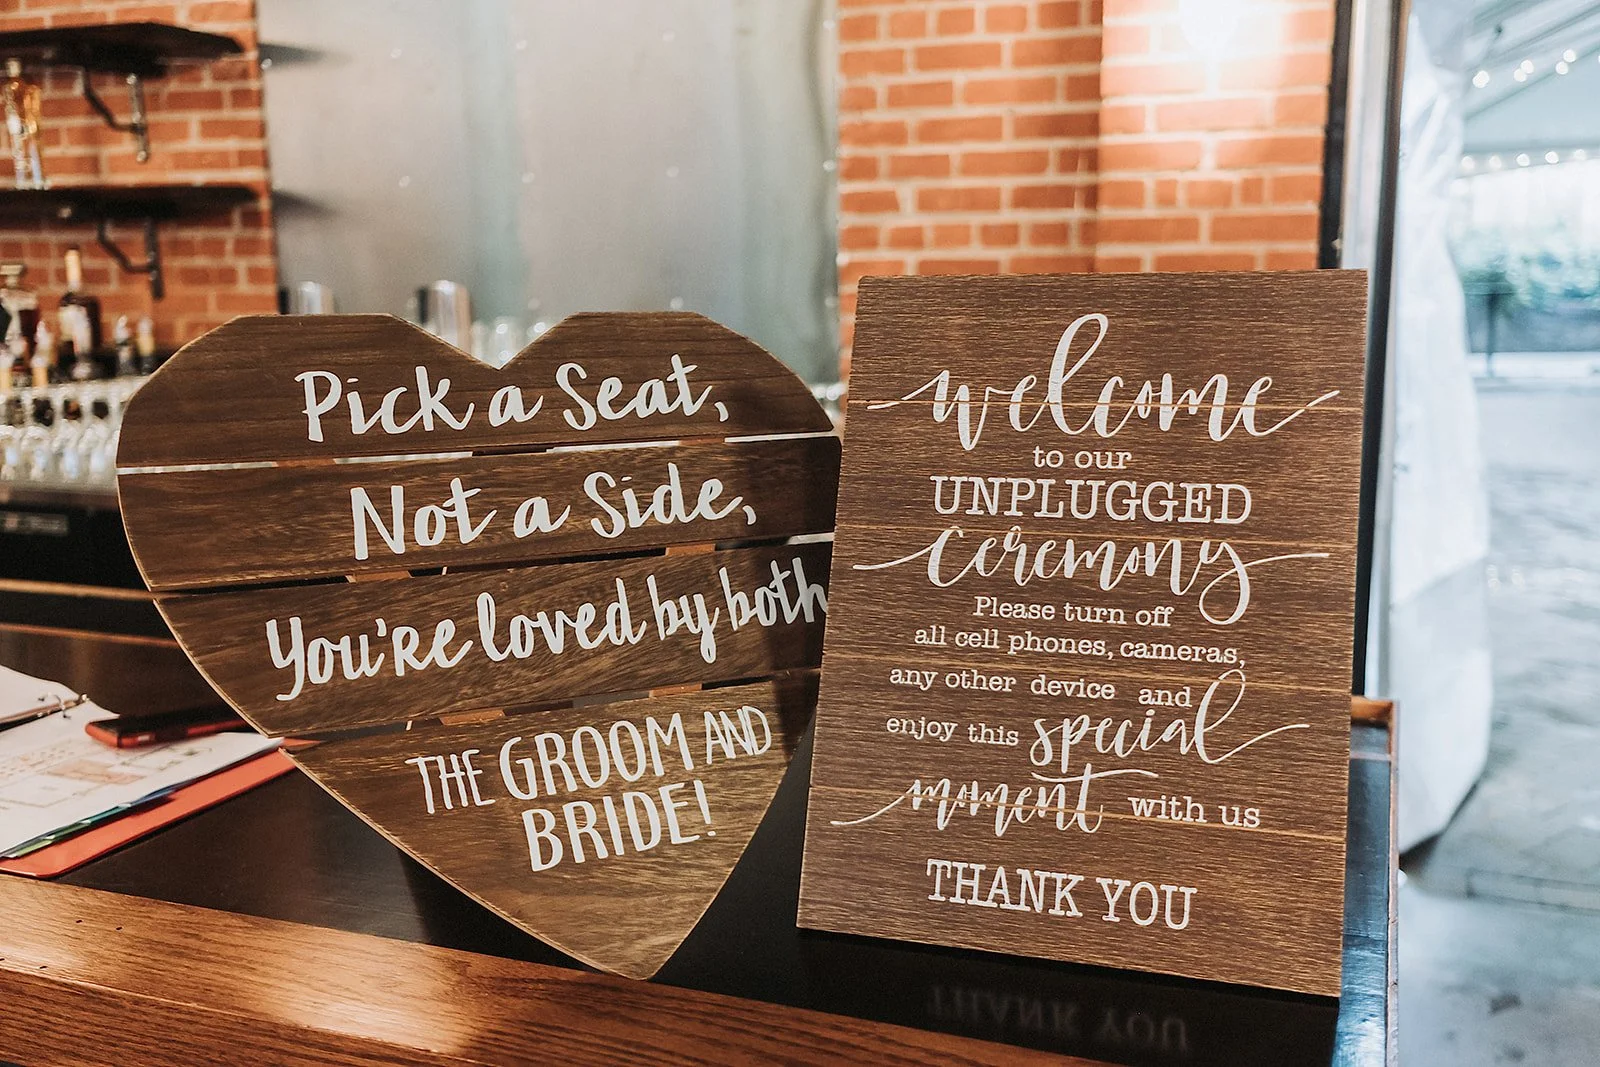 Pick a Seat,
Not a Side,
You're loved by both
THE GROOM AND
BRIDE!
welcome
to our
UNPLUGGED
ceremony
Please turn off
all cell phones, cameras,
any other device and
enjoy this special
moment with us
THANK YOU